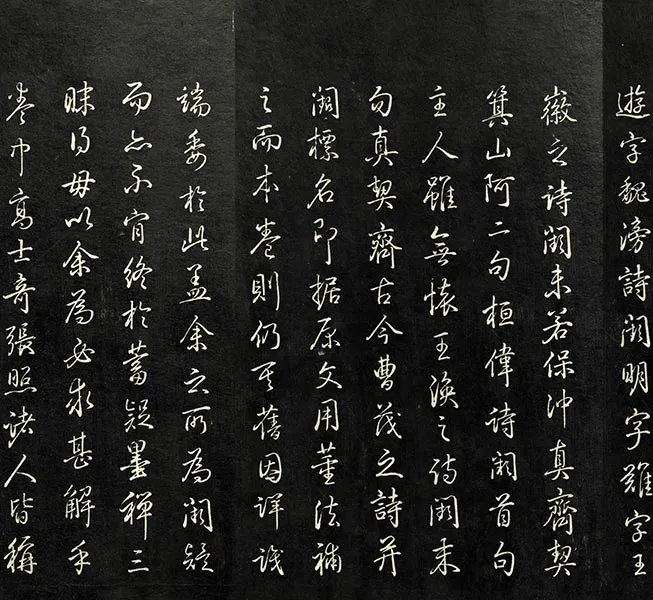 遊字魏滂詩闕明字難字王
徽之詩闕末若保沖真齊契
箕山阿二句桓偉詩闕首句
主人雖無懷王渙之詩闕末
句真契齊古今曹茂之詩并
闕標名即据原文用董法補
之而本卷則仍其舊因詳識
端委於此蓋余之所為闕疑
而亦不肯終於蓄疑墨禪三
昧得毋以余為必求甚解乎
卷中高士奇張照諸人皆稱